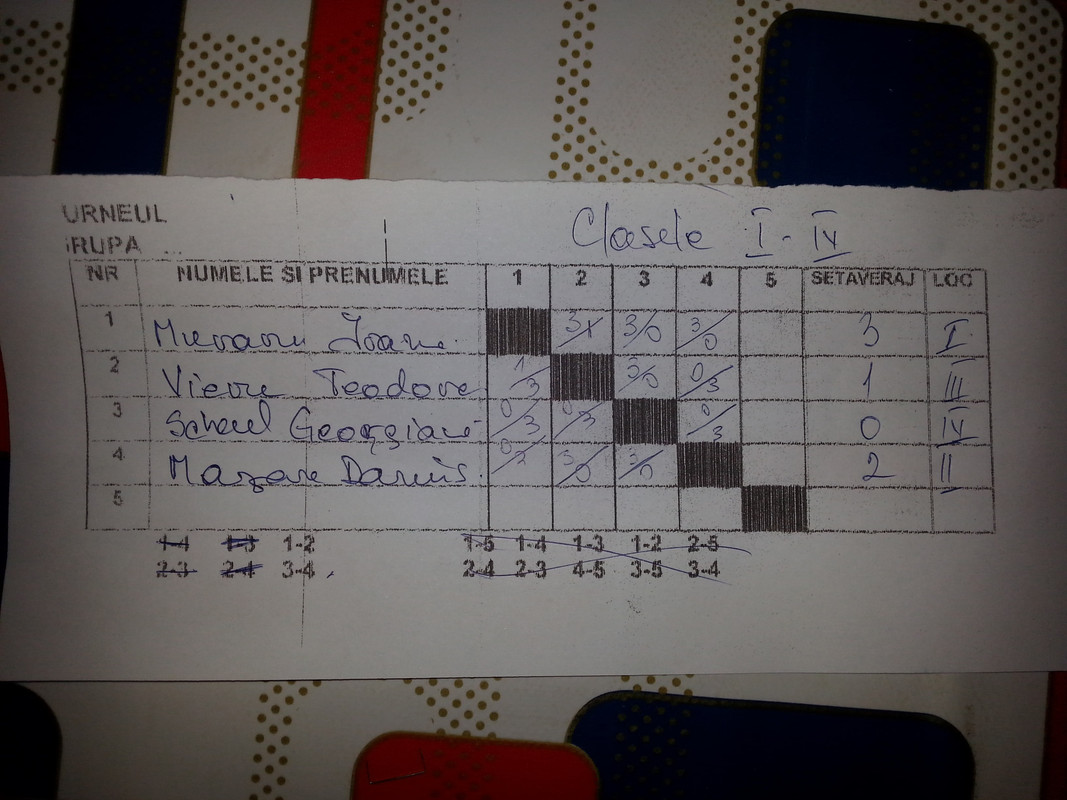 URNEUL
Clasele I - IV
RUPA ...
NR NUMELE SI PRENUMELE 1 2 3 4 5 SETAVERAJ LOC
1 Ioana 3/1 3/0 3/0 3 I
2 Vieru Teodora 1/3 3/0 0/3 1 III
3 Georgiana 0/3 0/3 0/3 0 IV
4 Mazare Darius 0/3 3/0 3/0 2 II
5
1-4 1-3 1-2 1-5 1-4 1-3 1-2 2-5
2-3 2-4 3-4 2-4 2-3 4-5 3-5 3-4